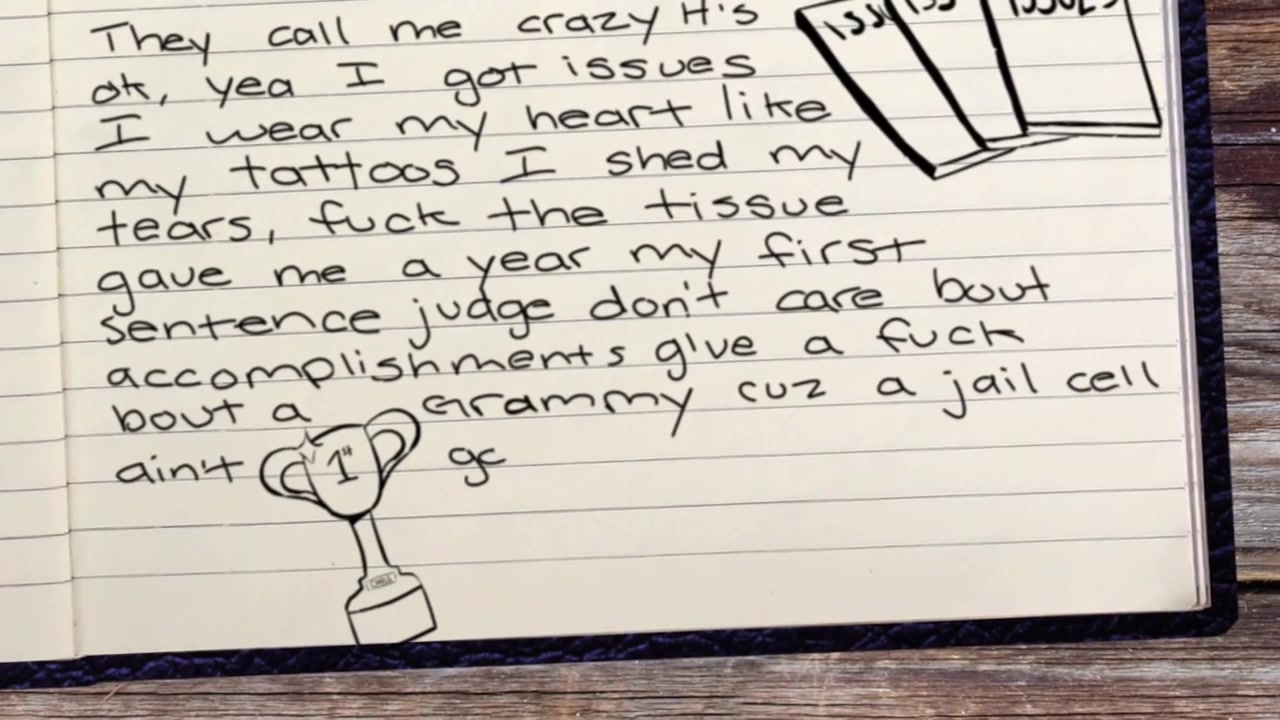 ISSUES
They call me crazy it's
ok, yea I got issues
I wear my heart like
my tattoos I shed my
tears, fuck the tissue
gave me a year my first
sentence judge don't care bout
accomplishments give a fuck
bout a Grammy cuz a jail cell
ain't gc
1st